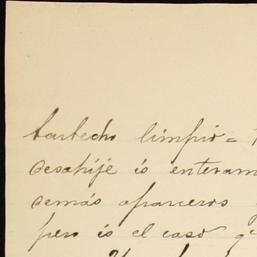 barbecho limpio =
desahije is enteram
demás aparceros
pero is el caso q